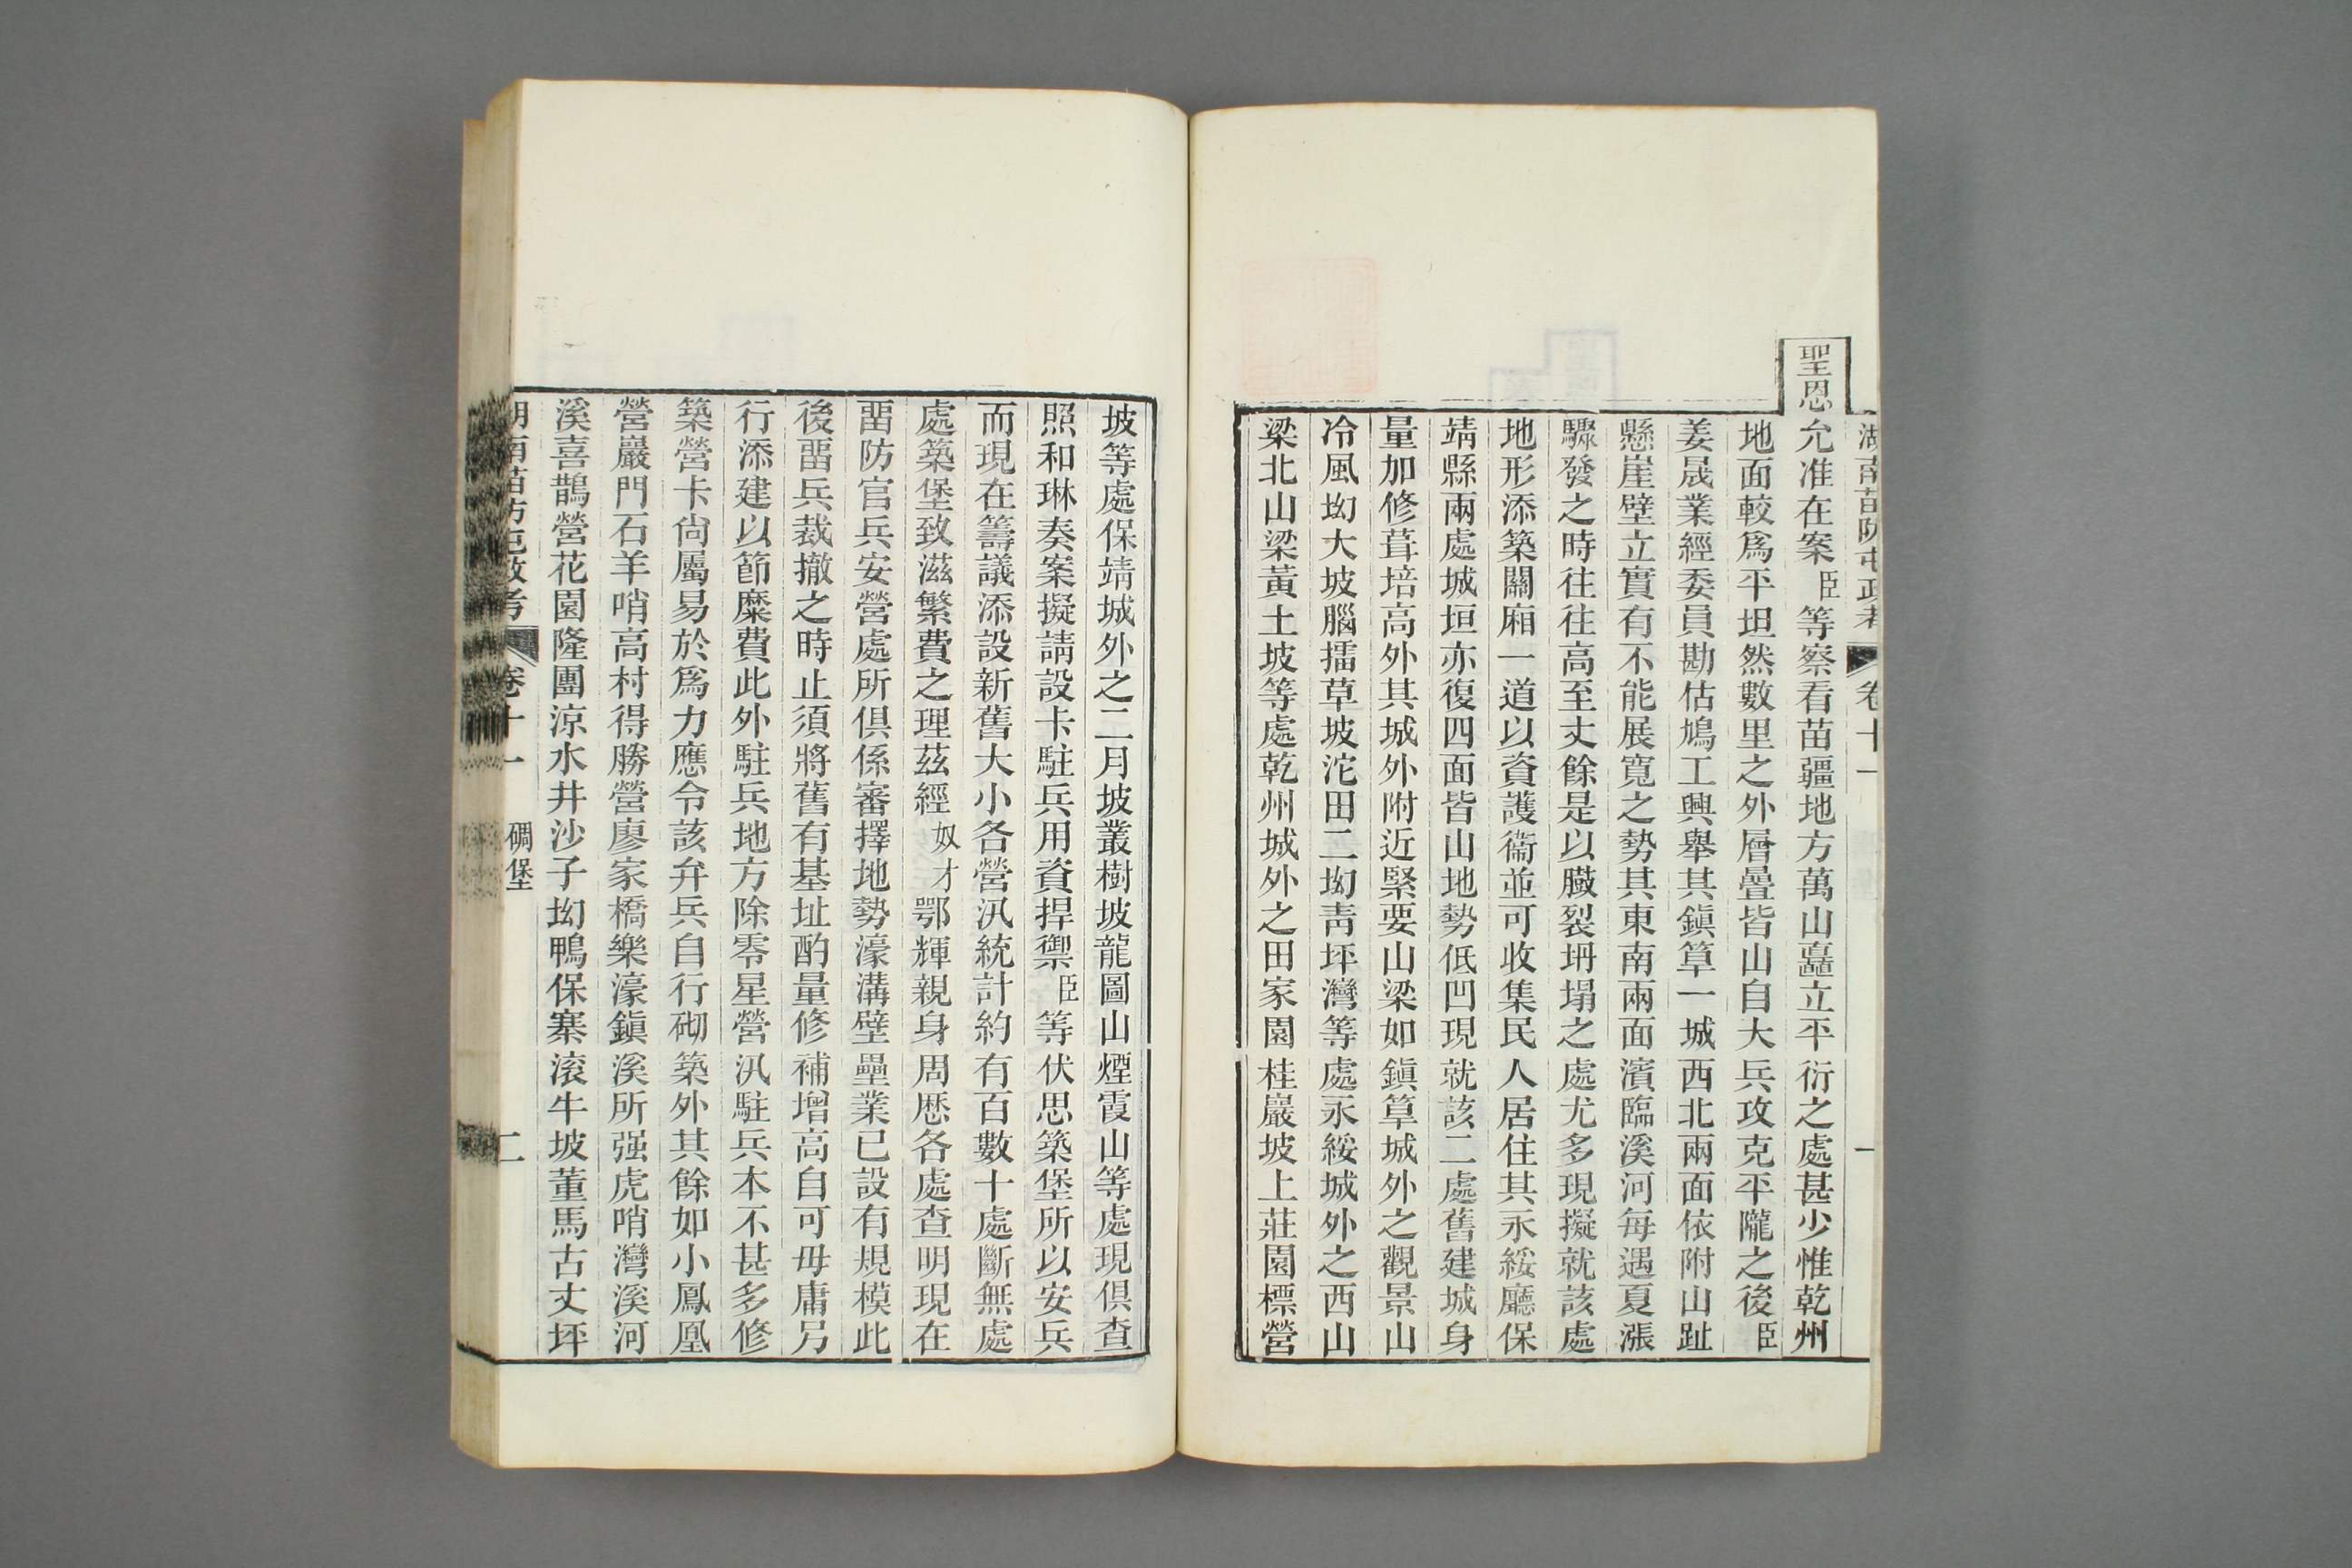 湖南苗防屯政考 卷十一 一
聖恩允准在案臣等察看苗疆地方萬山矗立平衍之處甚少惟乾州
地面較爲平坦然數里之外層疊皆山自大兵攻克平隴之後臣
姜晟業經委員勘估鳩工興舉其鎭筸一城西北兩面依附山趾
懸崖壁立實有不能展寬之勢其東南兩面濱臨溪河每遇夏漲
驟發之時往往高至丈餘是以臌裂坍塌之處尤多現擬就該處
地形添築關廂一道以資護衞並可收集民人居住其永綏廳保
靖縣兩處城垣亦復四面皆山地勢低凹現就該二處舊建城身
量加修葺培高外其城外附近緊要山梁如鎭筸城外之觀景山
冷風坳大坡腦擂草坡沱田二坳靑坪灣等處永綏城外之西山
梁北山梁黃土坡等處乾州城外之田家園桂巖坡上莊園標營
坡等處保靖城外之二月坡叢樹坡龍圖山煙霞山等處現俱查
照和琳奏案擬請設卡駐兵用資捍禦臣等伏思築堡所以安兵
而現在籌議添設新舊大小各營汛統計約有百數十處斷無處
處築堡致滋繁費之理茲經奴才鄂輝親身周歷各處查明現在
畱防官兵安營處所俱係審擇地勢濠溝壁壘業已設有規模此
後畱兵裁撤之時止須將舊有基址酌量修補增高自可毋庸另
行添建以節糜費此外駐兵地方除零星營汛駐兵本不甚多修
築營卡尙屬易於爲力應令該弁兵自行砌築外其餘如小鳳凰
營巖門石羊哨高村得勝營廖家橋樂濠鎭溪所强虎哨灣溪河
溪喜鵲營花園隆團涼水井沙子坳鴨保寨滾牛坡董馬古丈坪
湖南苗防屯政考 卷十一 碉堡 二